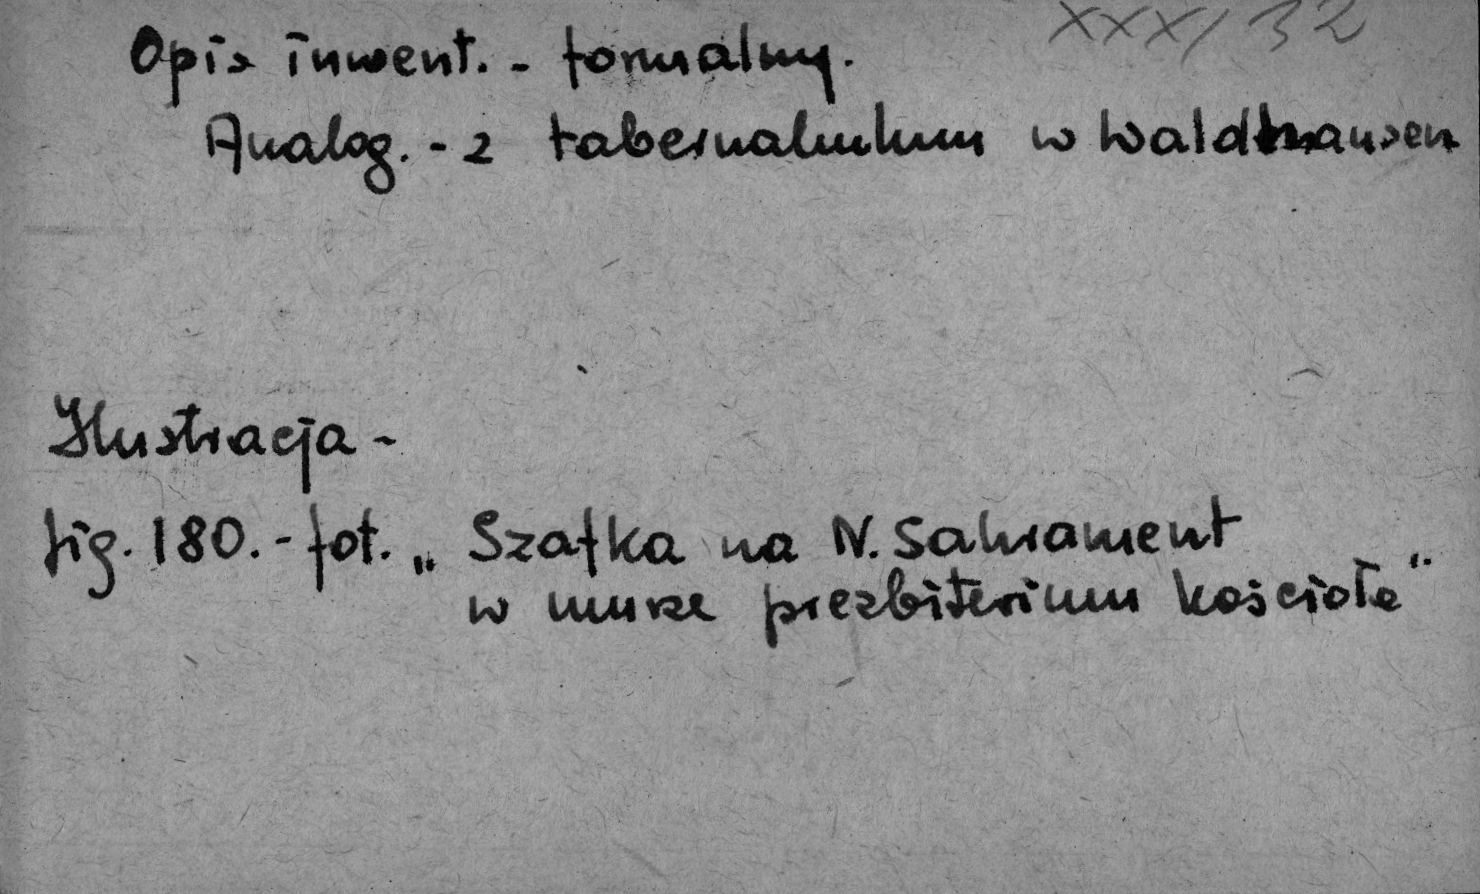 XXX/32
Opis inwent. - formalny.
Analog. - z tabernakulum w Waldhausen
Ilustracja -
fig. 180. - fot. „ Szafka na N. Sakrament
w murze prezbiterium kościoła"